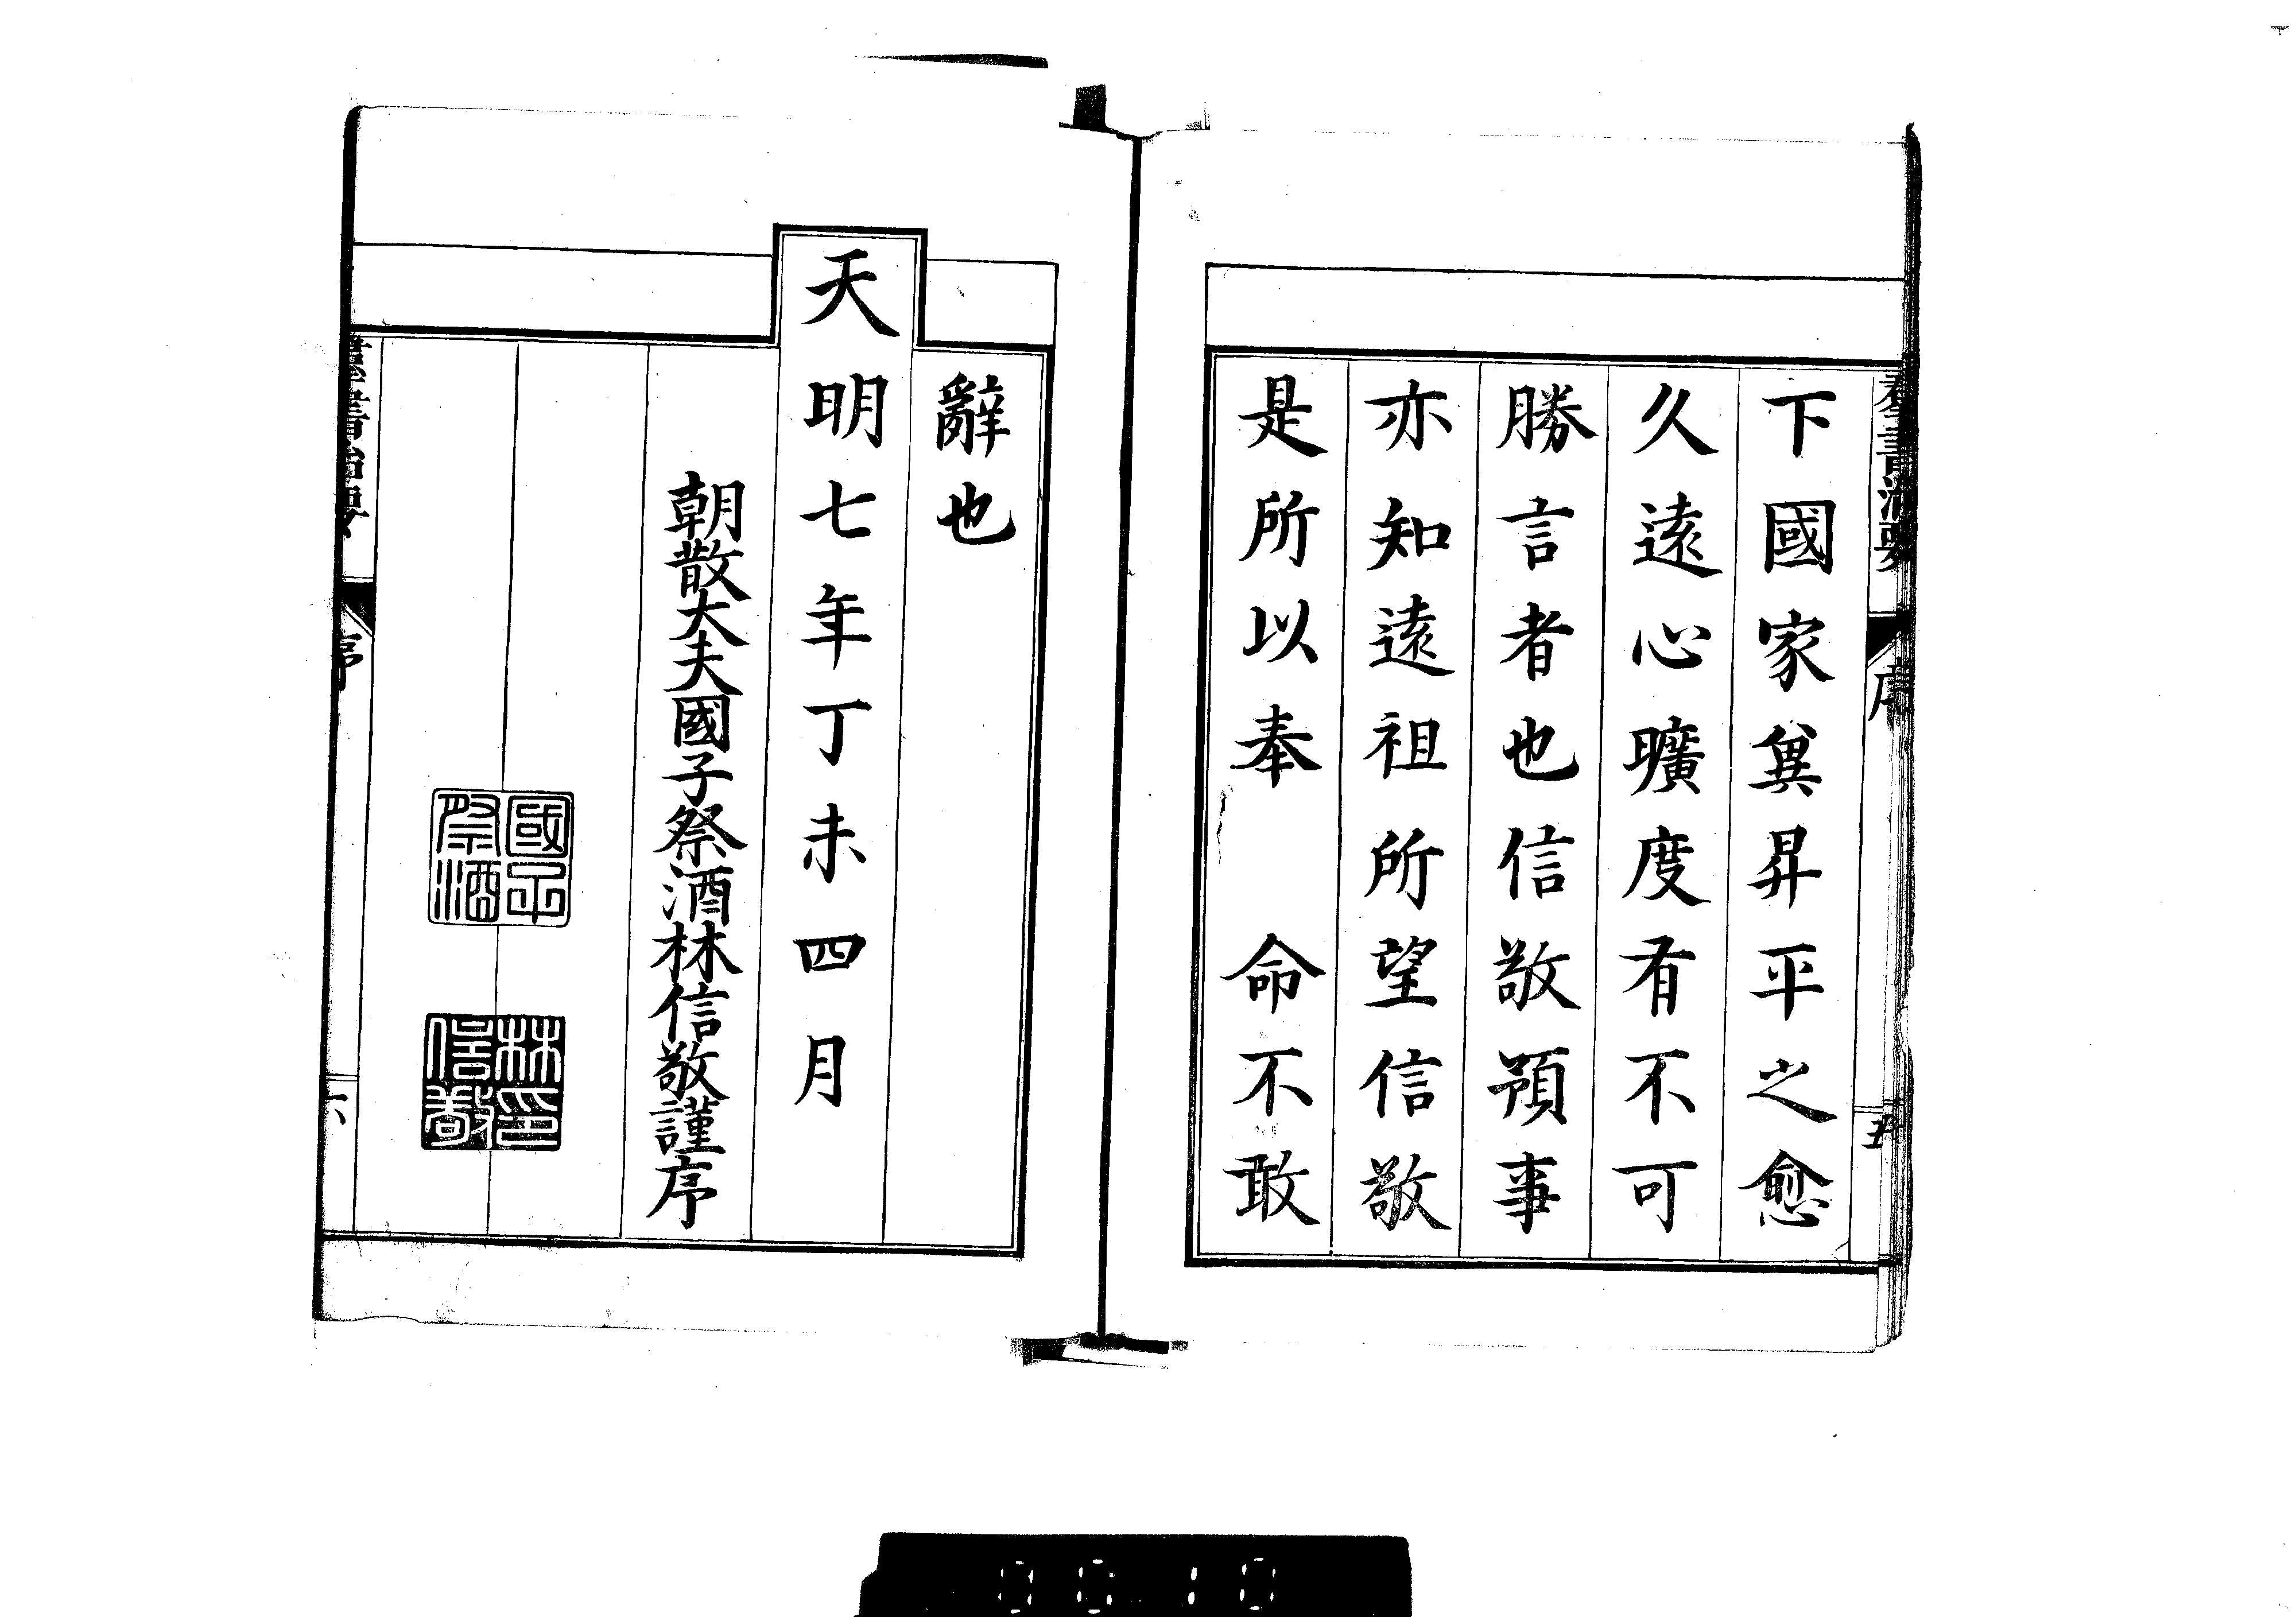 羣書治要
序
五
下國家冀昇平之愈
久遠心曠度有不可
勝言者也信敬預事
亦知遠祖所望信敬
是所以奉　命不敢
辭也
天明七年丁未四月
朝散大夫國子祭酒林信敬謹序
國子祭酒
林印信敬
羣書治要
序
六
0010